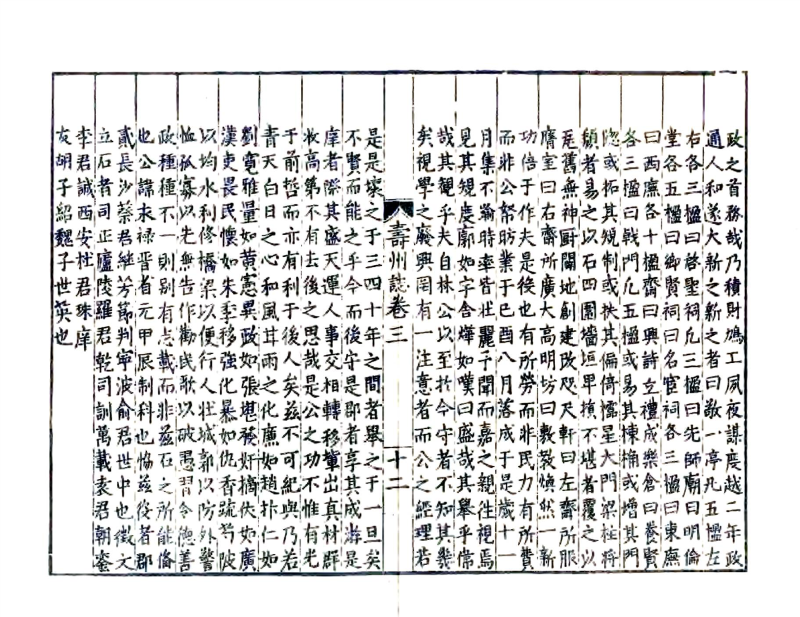 政之首務哉乃積財鳩工夙夜謀度越二年政
通人和遂大新之新之者曰敬一亭凡五楹左
右各三楹曰啓聖祠凡三楹曰先師廟曰明倫
堂各五楹曰鄉賢祠曰名宦祠各三楹曰東廡
曰西廡各十楹齋曰興詩立禮成樂倉曰養賢
各三楹曰戟門凡五楹或易其棟桷或增其門
隘或拓其規制或扶其偏倚櫺星大門梁柱將
頹者易之以石四圍墻垣卑損不堪者覆之以
瓦舊無神厨闢地創建改咫尺軒曰左齋所服
膺室曰右齋所廣大高明坊曰敷教煥然一新
功倍于作夫是役也有所勞而非民力有所費
而非公帑昉業于己酉八月落成于是歲十一
月集不踰時率皆壯麗予聞而嘉之親往視焉
見其規度廓如字含燁如嘆曰盛哉其舉乎常
哉其觀乎夫自林公以至於今守者不知其幾
矣視學之廢興罔有一注意者而公之經理若
壽州誌卷三 十二
是是壞之于三四十年之間者舉之于一旦矣
不賢而能之乎今而後守是郡者享其成游是
庠者際其盛天運人事交相轉移輩出真材群
妝高第不有去後之思哉是公之功不惟有光
于前哲而亦有利于後人矣茲不可紀與乃若
青天白日之心和風甘雨之化廉如趙抃仁如
劉寬雅量如黃憲異政如張堪發奸擿伏如廣
漢吏畏民懷如朱季移強化暴如仇香疏芍陂
以均水利修橋梁以便行人壯城郭以防外警
恤孤寡以先無告作勸民歌以破愚習令德善
政種種不一則別有志載而非茲石之所能備
也公諱永祿晉者元甲辰制科也恊茲役者郡
貳長沙蔡君繼芳節判寧波俞君世中也徵文
立石者司正廬陵羅君乾司訓萬載袁君朝鑾
李君誠西安杜君珠庠
友胡子紹魏子世英也